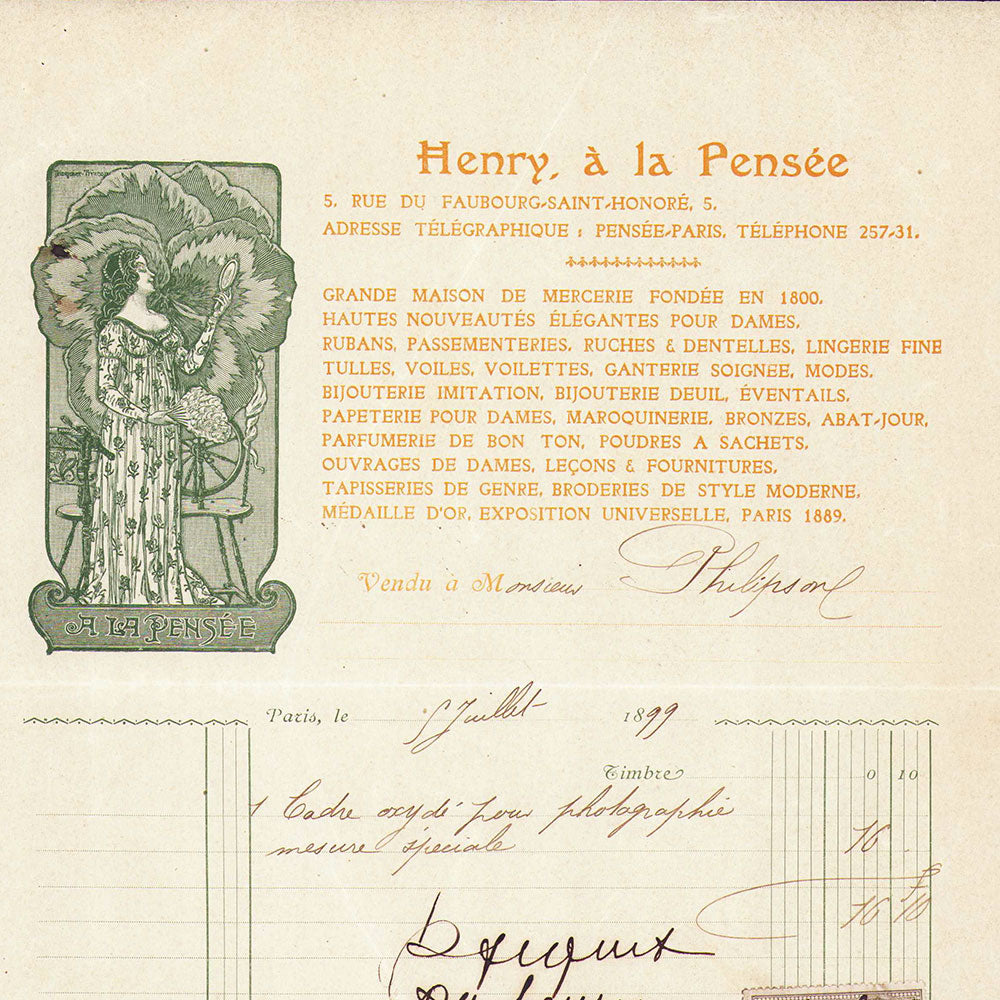 Henry, à la Pensée
5, RUE DU FAUBOURG-SAINT-HONORÉ, 5.
ADRESSE TÉLÉGRAPHIQUE : PENSÉE-PARIS. TÉLÉPHONE 257-31.
GRANDE MAISON DE MERCERIE FONDÉE EN 1800.
HAUTES NOUVEAUTÉS ÉLÉGANTES POUR DAMES,
RUBANS, PASSEMENTERIES, RUCHES & DENTELLES, LINGERIE FINE
TULLES, VOILES, VOILETTES, GANTERIE SOIGNEE, MODES,
BIJOUTERIE IMITATION, BIJOUTERIE DEUIL, ÉVENTAILS,
PAPETERIE POUR DAMES, MAROQUINERIE, BRONZES, ABAT-JOUR,
PARFUMERIE DE BON TON, POUDRES A SACHETS,
OUVRAGES DE DAMES, LEÇONS & FOURNITURES,
TAPISSERIES DE GENRE, BRODERIES DE STYLE MODERNE,
MÉDAILLE D'OR, EXPOSITION UNIVERSELLE, PARIS 1889.
A LA PENSÉE
Vendu à Monsieur Philipson
Paris, le 5 Juillet 1899
Timbre 0 10
1 Cadre oxydé pour photographie
mesure speciale 16 .
16 10